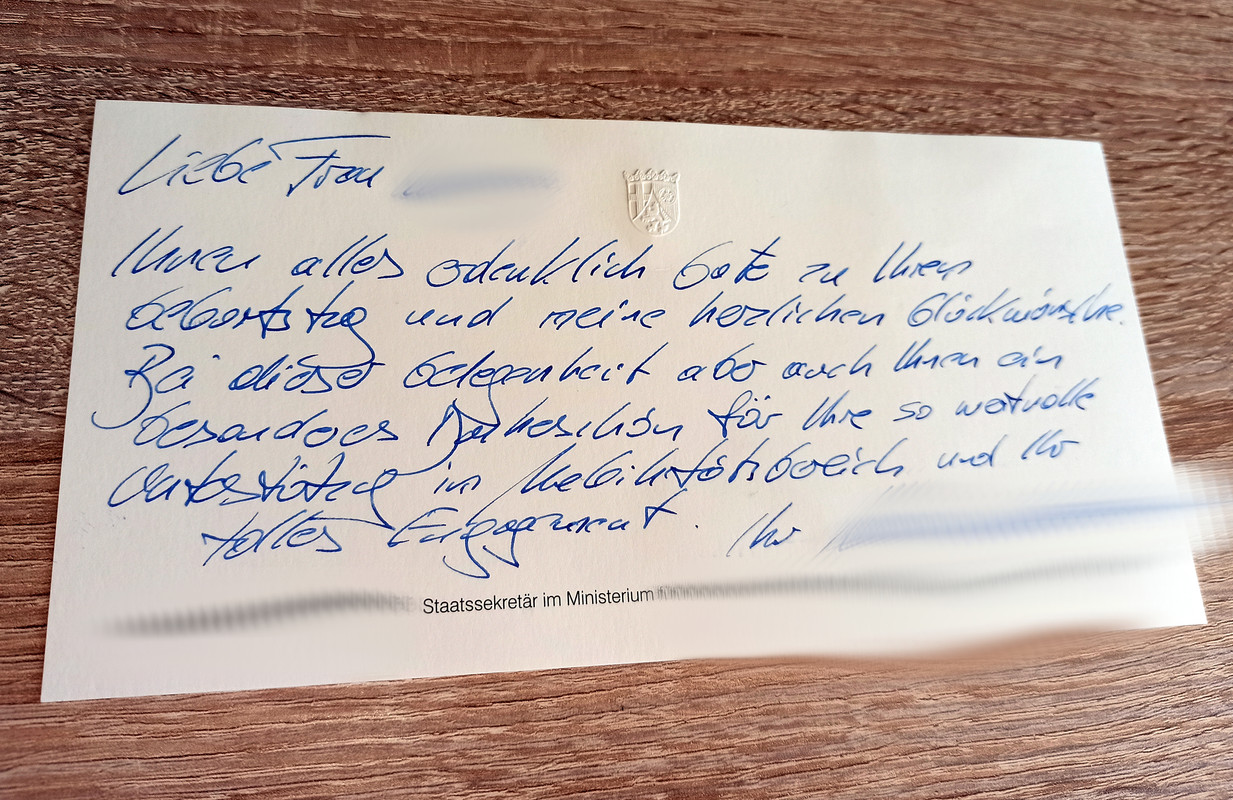 Liebe Frau
Ihnen alles erdenklich Gute zu Ihrem
Geburtstag und meine herzlichen Glückwünsche.
Bei dieser Gelegenheit aber auch Ihnen ein
besonderes Dankeschön für Ihre so wertvolle
Unterstützung im Mobilitätsbereich und Ihr
tolles Engagement. Ihr
Staatssekretär im Ministerium